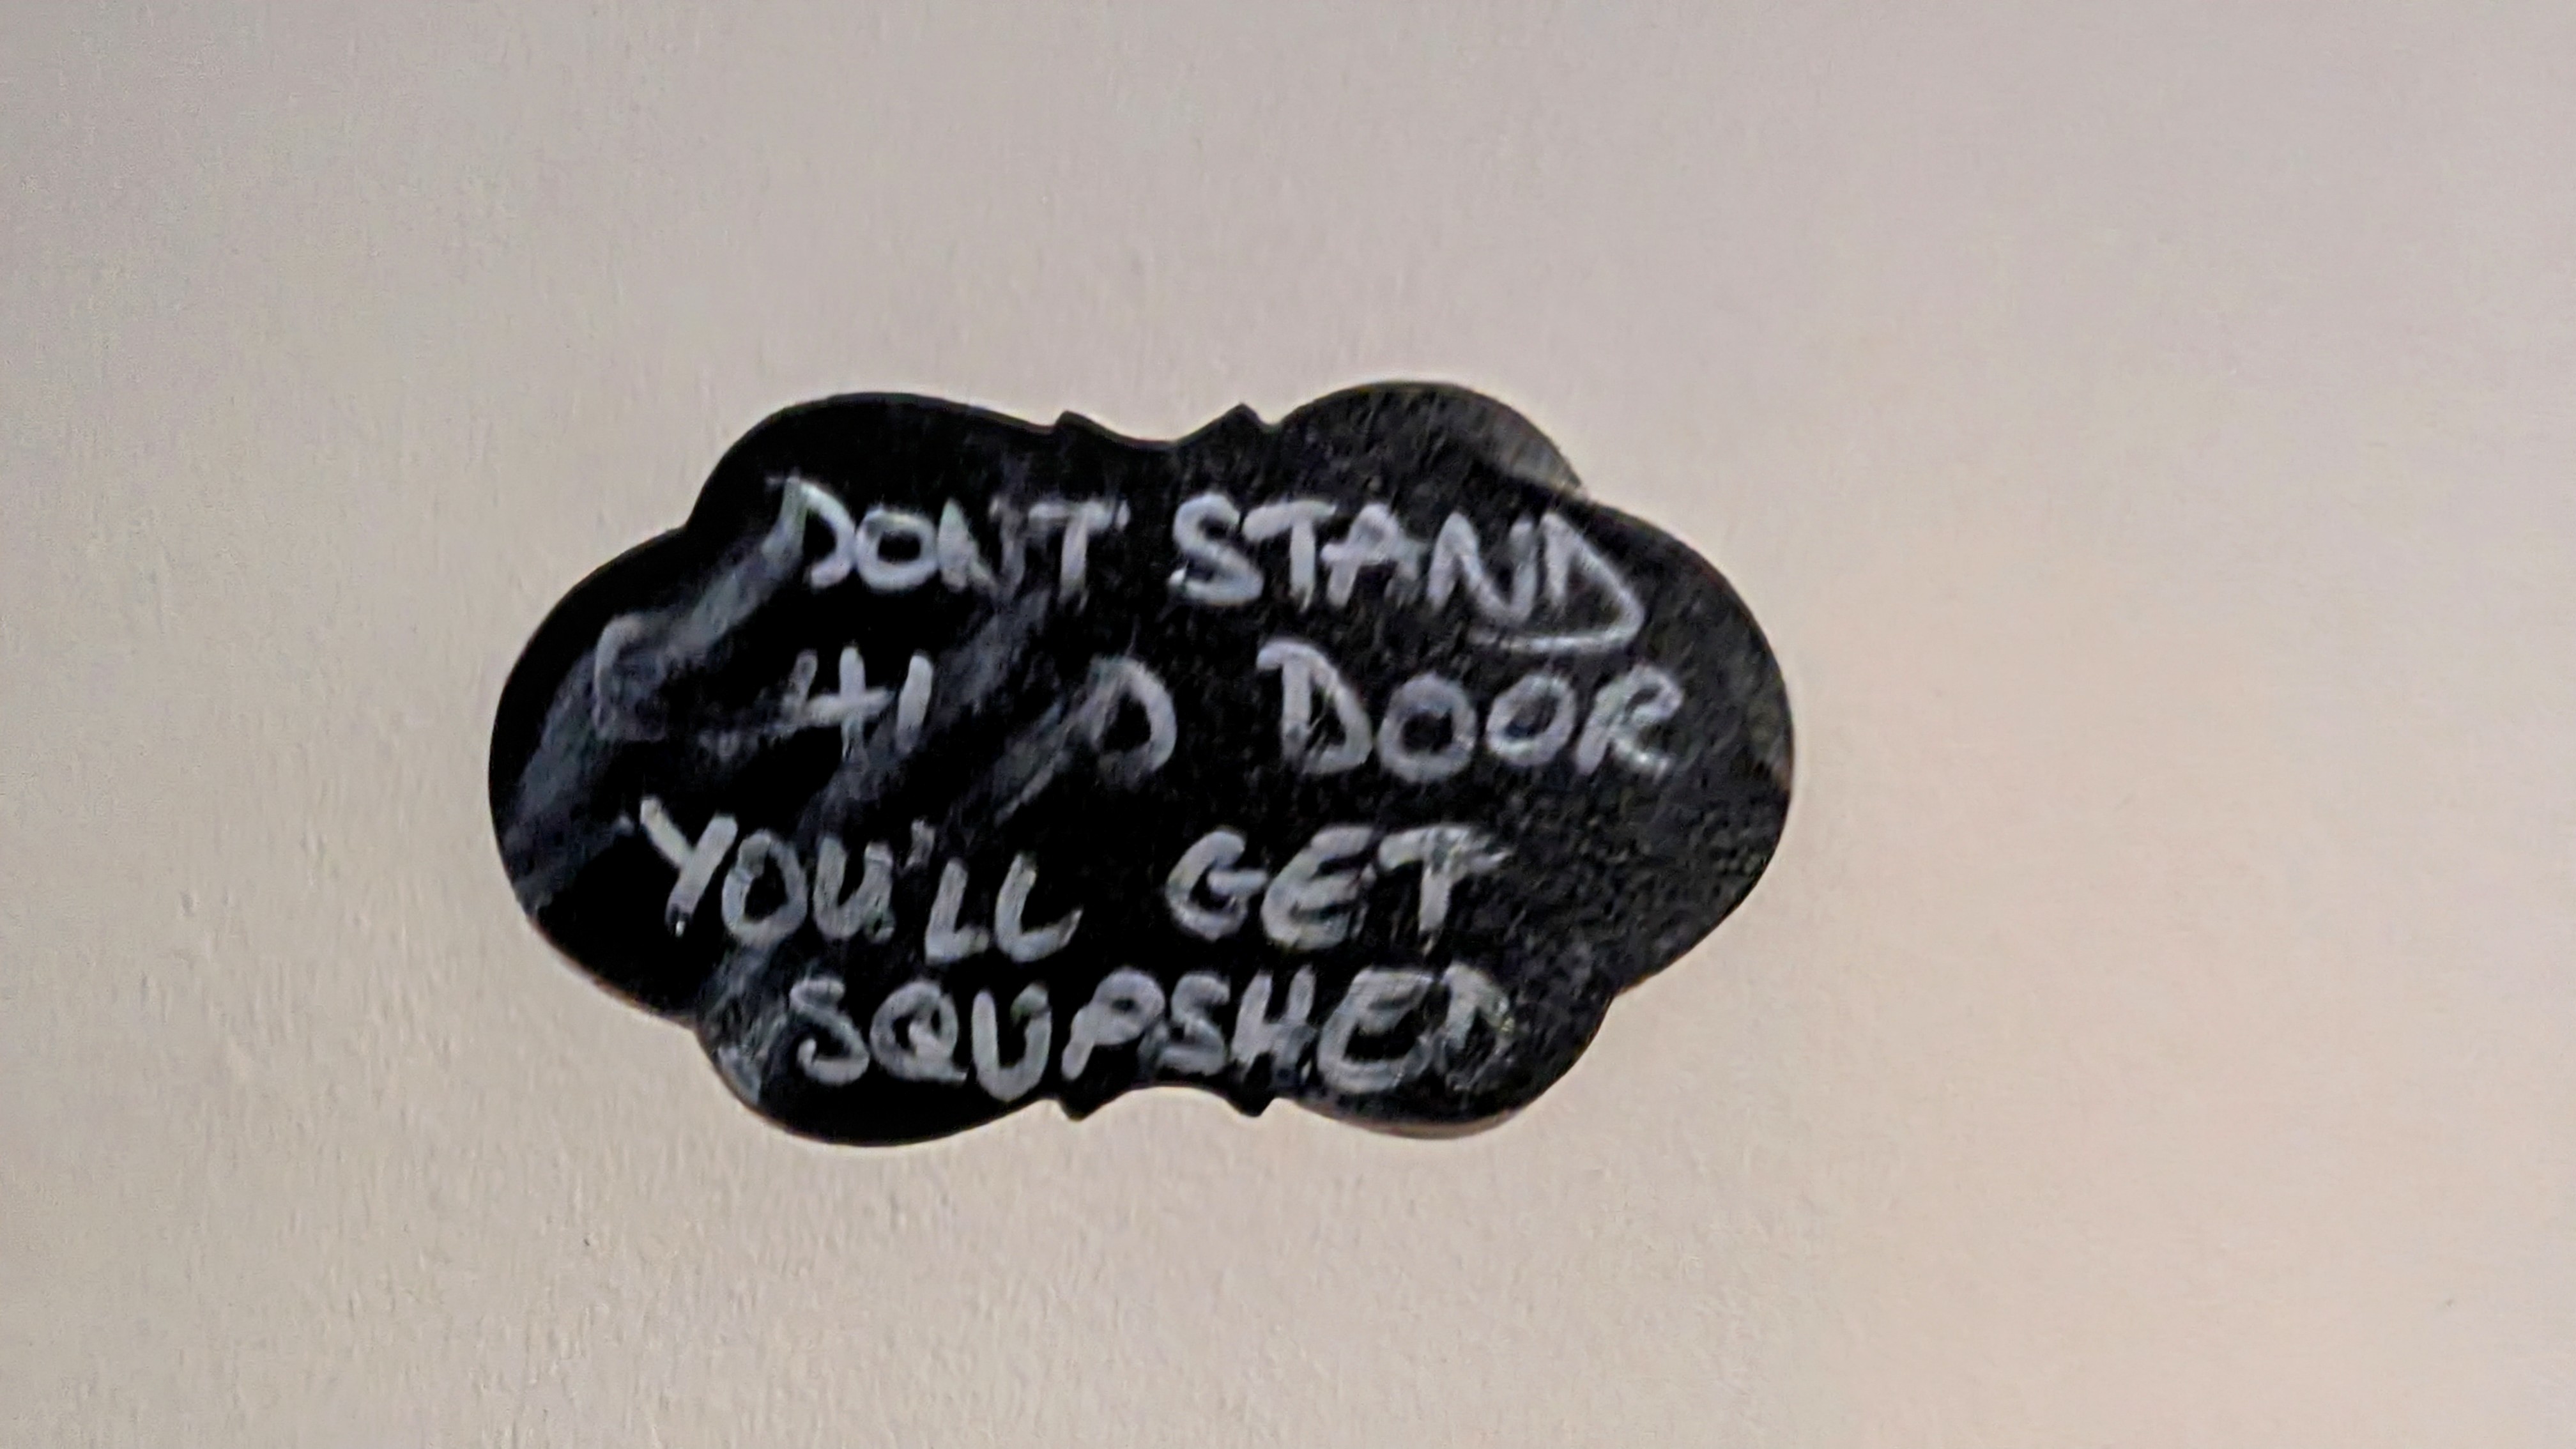 DON'T STAND
DOOR
YOU'LL GET
SQUPSHED